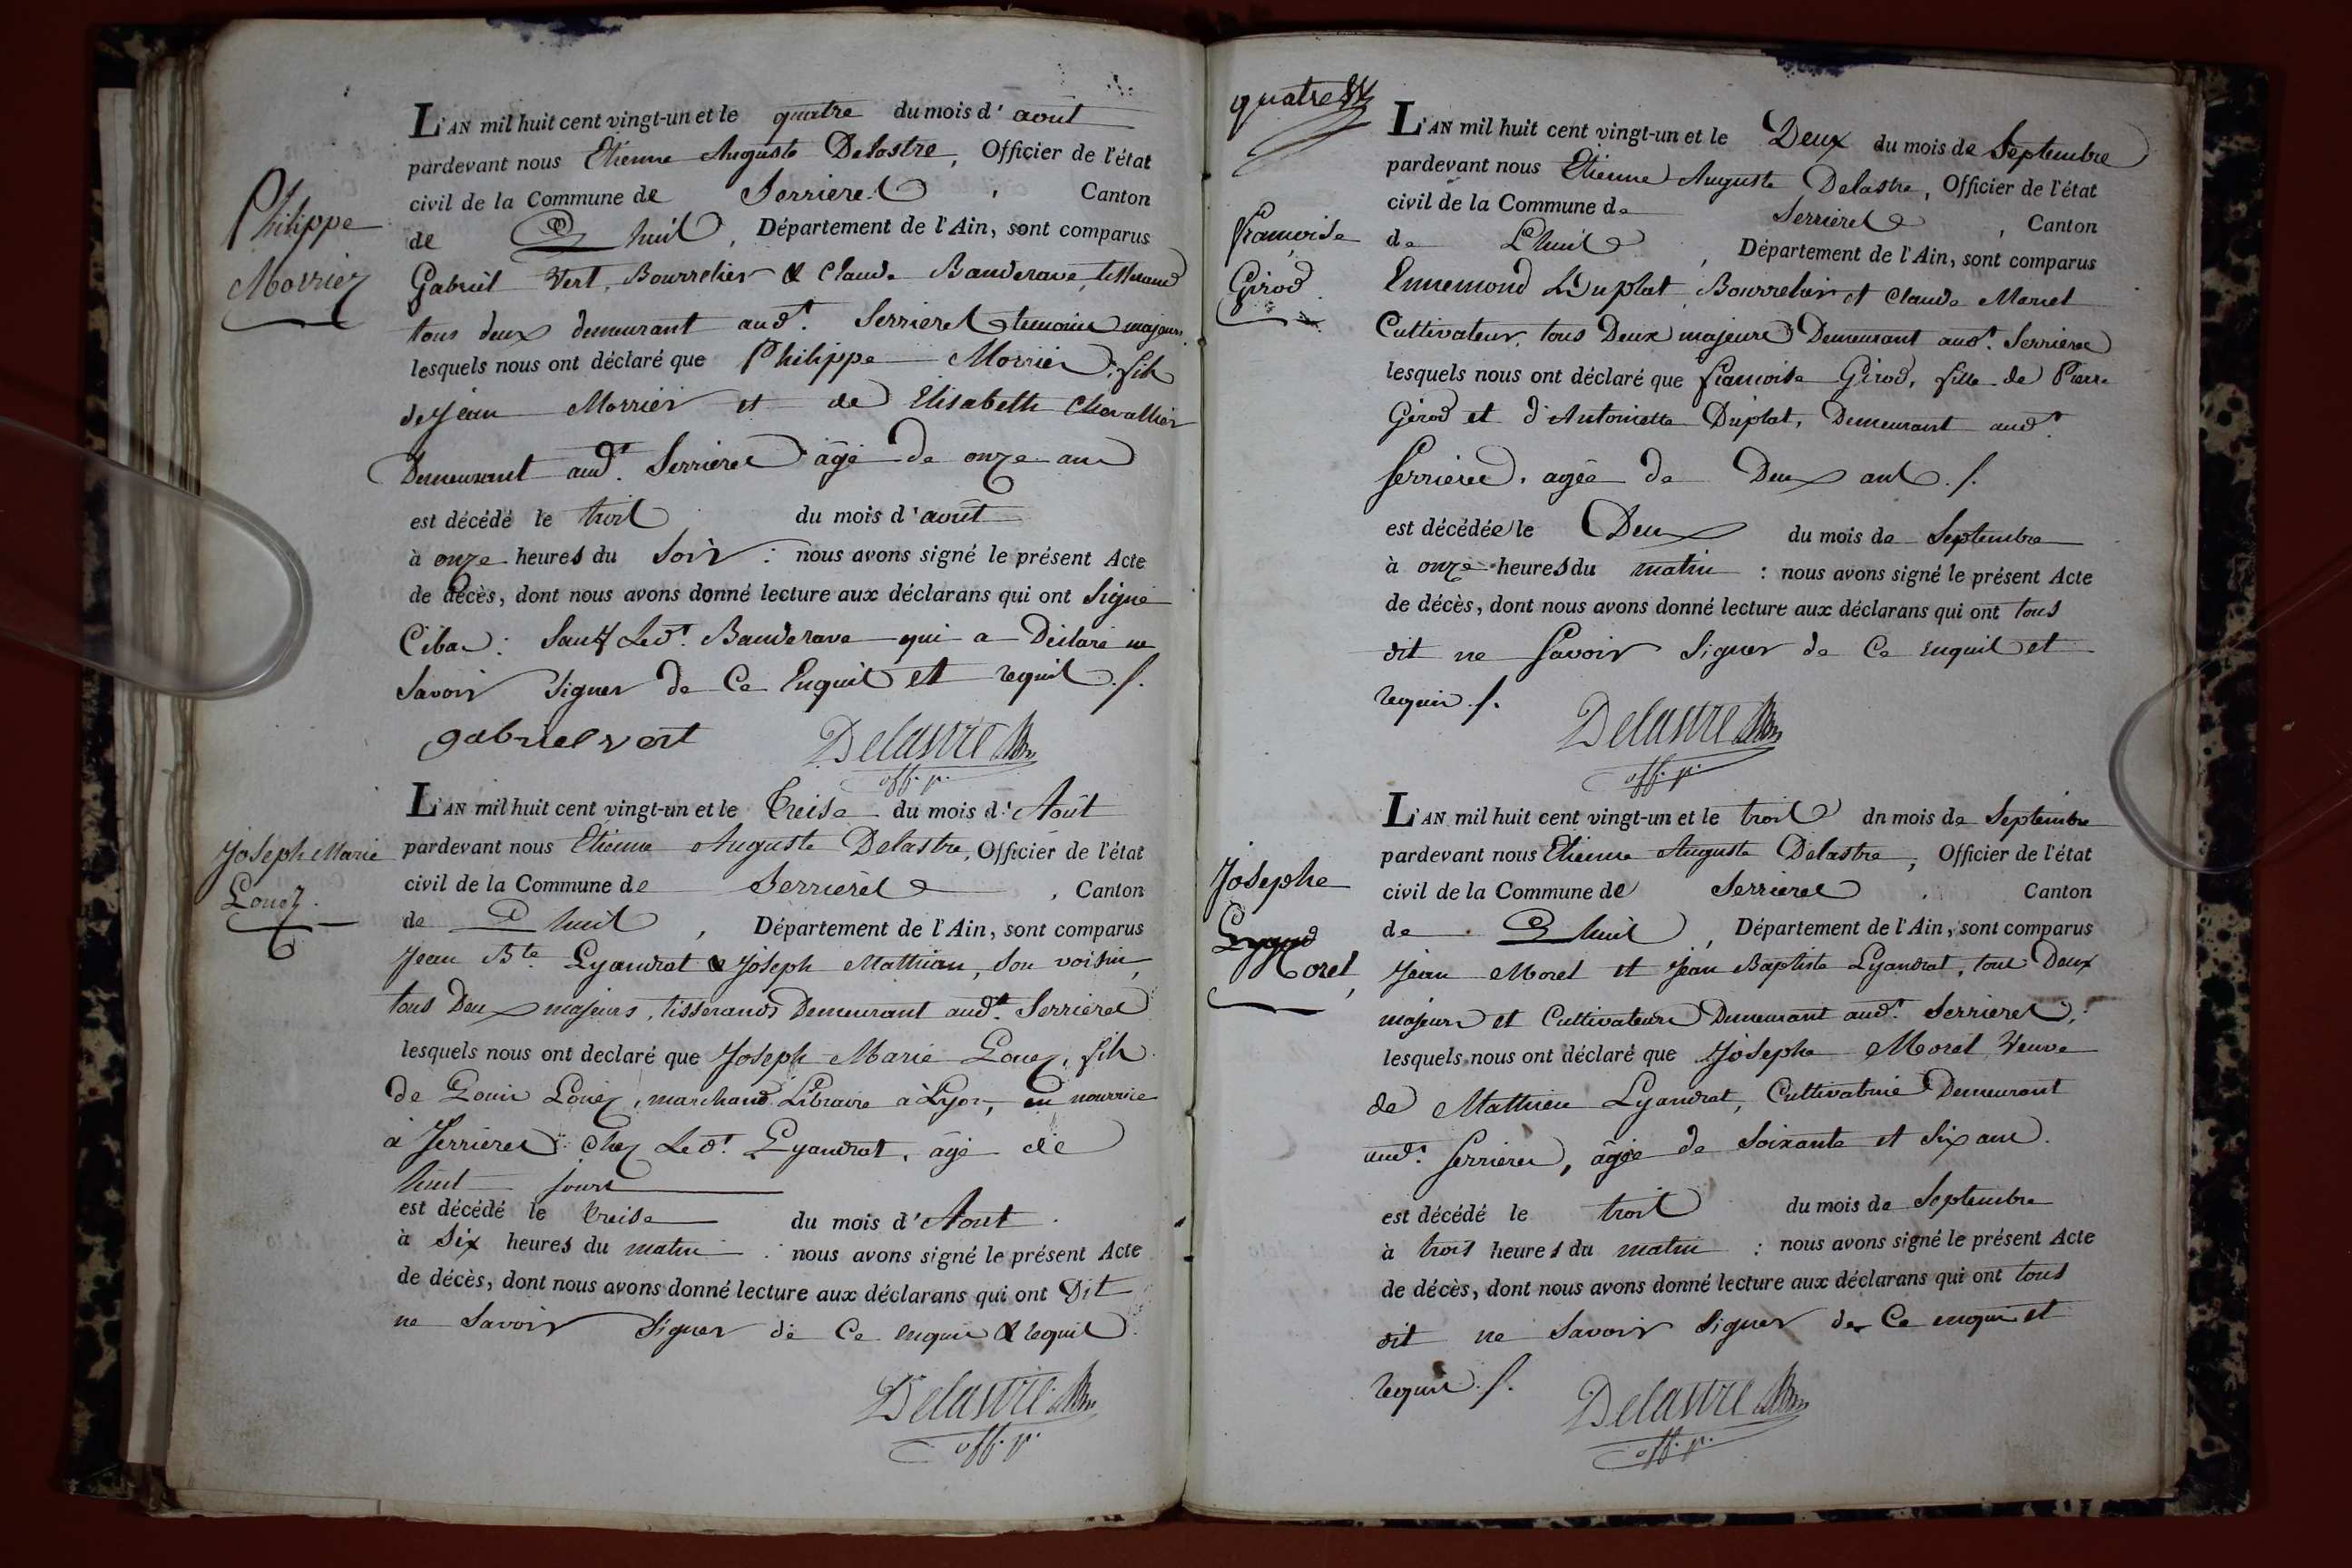 L'AN mil huit cent vingt-un et le quatre du mois d'aout
pardevant nous Etienne Auguste Delastre, Officier de l'état
civil de la Commune de Serrieres, Canton
de Lhuis, Département de l'Ain, sont comparus
Gabriel Vert, Bourrelier & Claude Banderave, tisserand
tous deux demeurant aud.t Serrieres temoins majeurs
lesquels nous ont déclaré que Philippe Morrier, fils
de Jean Morrier et de Elisabeth Chevallier
Demeurant aud.t Serrieres âgé de onze ans
est décédé le trois du mois d'août
à onze heures du Soir : nous avons signé le présent Acte
de décès, dont nous avons donné lecture aux déclarans qui ont Signé
Cibas : Sauf Led.t Banderave qui a Déclaré ne
Savoir Signer de Ce Enquis et requis ./.
gabriel vert Delastre
off. p.
Philippe
Morrier
L'AN mil huit cent vingt-un et le Treise du mois d'Août
pardevant nous Etienne Auguste Delastre, Officier de l'état
civil de la Commune de Serrières, Canton
de Lhuis, Département de l'Ain, sont comparus
Jean Bte Lyandrat & Joseph Mathian, Son voisin,
tous Deux majeurs, tisserands Demeurant aud.t Serrieres
lesquels nous ont declaré que Joseph Marie Louez, fils
de Louis Louez, marchand Libraire à Lyon, en nourrice
à Serrieres Chez Led.t Lyandrat, âgé de
huit jours
est décédé le treise du mois d'Aout
à Six heures du matin : nous avons signé le présent Acte
de décès, dont nous avons donné lecture aux déclarans qui ont Dit
ne Savoir Signer de Ce enquis & requis
Delastre
off. p.
Joseph Marie
Louez.
quatre
L'AN mil huit cent vingt-un et le Deux du mois de Septembre
pardevant nous Etienne Auguste Delastre, Officier de l'état
civil de la Commune de Serrieres, Canton
de Lhuis, Département de l'Ain, sont comparus
Ennemond Duplat, Bourrelier et Claude Marcel
Cultivateur, tous Deux majeurs Demeurant aud.t Serrieres
lesquels nous ont déclaré que françoise Girod, fille de Pierre
Girod et d'Antoinette Duplat, Demeurant aud.t
Serrieres, agée de Deux ans ./.
est décédée le Deux du mois de Septembre
à onze heures du matin : nous avons signé le présent Acte
de décès, dont nous avons donné lecture aux déclarans qui ont tous
dit ne Savoir Signer de Ce enquis et
requis ./.
Delastre
off. p.
françoise
Girod
L'AN mil huit cent vingt-un et le trois dn mois de Septembre
pardevant nous Etienne Auguste Delastre, Officier de l'état
civil de la Commune de Serrieres Canton
de Lhuis, Département de l'Ain, sont comparus
Jean Morel et Jean Baptiste Lyandrat, tous Deux
majeurs et Cultivateurs Demeurant aud.t Serrieres,
lesquels nous ont déclaré que Josephe Morel Veuve
de Mathieu Lyandrat, Cultivatrice Demeurant
aud.t Serrieres, âgée de Soixante et Six ans.
est décédé le trois du mois de Septembre
à trois heures du matin : nous avons signé le présent Acte
de décès, dont nous avons donné lecture aux déclarans qui ont tous
dit ne Savoir Signer de Ce enquis et
requis ./.
Delastre
off. p.
Josephe
Morel,